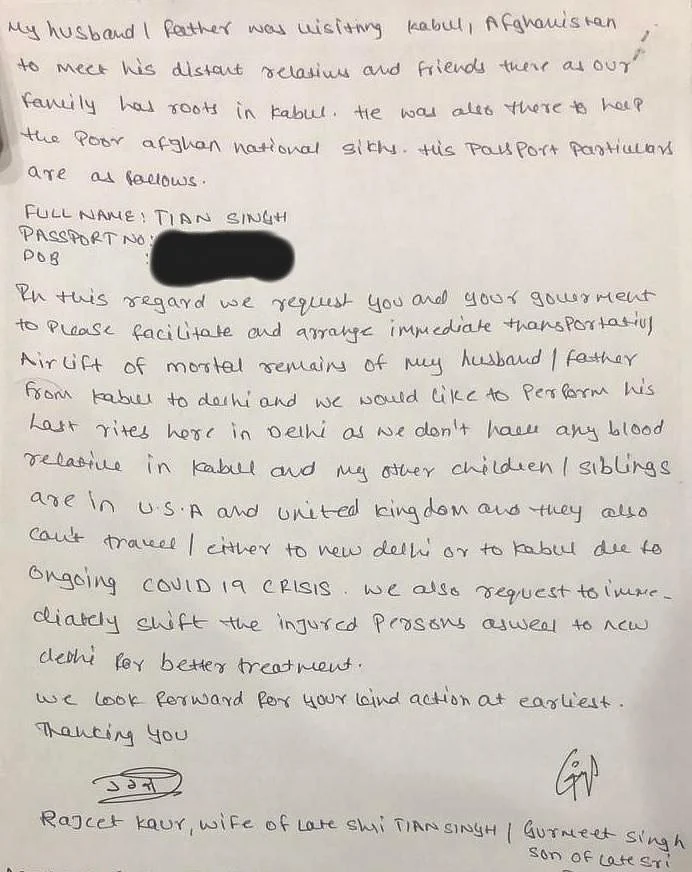 My husband / father was visiting Kabul, Afghanistan
to meet his distant relatives and friends there as our
family has roots in Kabul. He was also there to help
the poor afghan national sikhs. His Passport Particulars
are as follows.
FULL NAME: TIAN SINGH
PASSPORT NO:
DOB :
In this regard we request you and your government
to Please facilitate and arrange immediate transportation/
Airlift of mortal remains of my husband / father
from Kabul to delhi and we would like to Perform his
Last rites here in Delhi as we don't have any blood
relative in Kabul and my other children / siblings
are in U.S.A and united kingdom and they also
can't travel / either to new delhi or to Kabul due to
Ongoing COVID 19 CRISIS. we also request to imme-
diately shift the injured Persons aswell to new
delhi for better treatment.
we look forward for your kind action at earliest.
Thanking you
Rajeet Kaur, wife of Late Shri TIAN SINGH / Gurmeet Singh
son of Late Sri